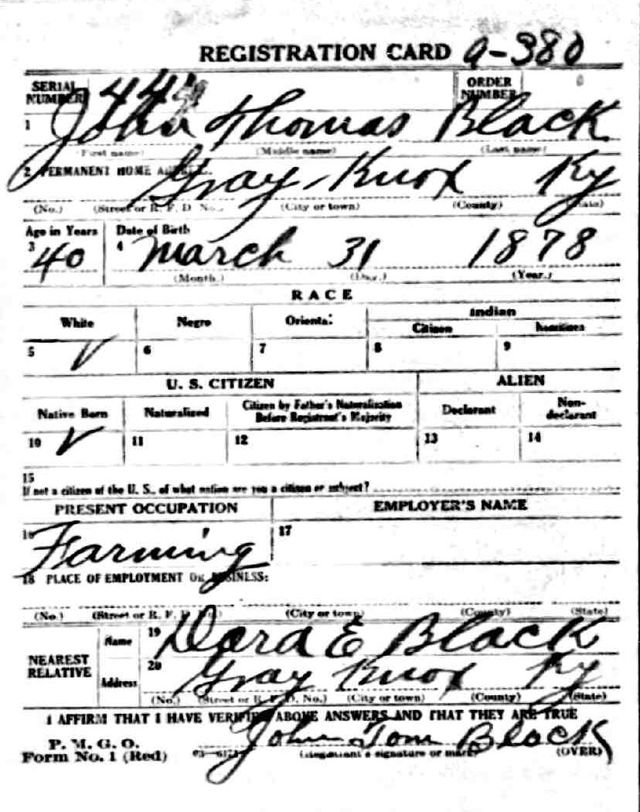 REGISTRATION CARD a-380
SERIAL NUMBER 444 ORDER NUMBER
1 John Thomas Black
(First name) (Middle name) (Last name)
2 PERMANENT HOME
Gray - Knox Ky
(No.) (Street or R. F. D. No.) (City or town) (County) (State)
Age in Years Date of Birth
3 40 4 March 31 1878
(Month.) (Day.) (Year.)
RACE
White Negro Oriental Indian
Citizen
5 V 6 7 8 9
U. S. CITIZEN ALIEN
Native Born Naturalized Citizen by Father's Naturalization Before Registrant's Majority Declarant Non-declarant
10 V 11 12 13 14
15
If not a citizen of the U. S., of what nation are you a citizen or subject?
PRESENT OCCUPATION EMPLOYER'S NAME
16 Farming 17
18 PLACE OF EMPLOYMENT OR BUSINESS:
(No.) (Street or R. F. D. No.) (City or town) (County) (State)
NEAREST RELATIVE Name 19 Dora E Black
Address 20 Gray Knox Ky
(No.) (Street or R. F. D. No.) (City or town) (County) (State)
I AFFIRM THAT I HAVE VERIFIED ABOVE ANSWERS AND THAT THEY ARE TRUE
P. M. G. O.
Form No. 1 (Red) John Tom Black
(Registrant's signature or mark) (OVER)